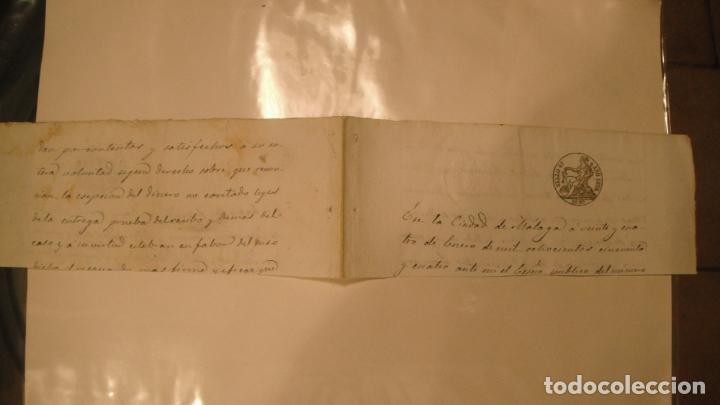 dan por contentos y satisfechos a su en-
tera voluntad segun derecho sobre que renun-
cian la esepcion del dinero no contado leyes
de la entrega prueba del recibo y demas del
caso y a su virtud celebran en fabor del
mas firme y eficaz que
SELLO 4º AÑO 1854
En la Ciudad de Málaga á veinte y cua-
tro de Enero de mil ochocientos cincuenta
y cuatro ante mi el Esno publico del número
todocoleccion
todocoleccion.net